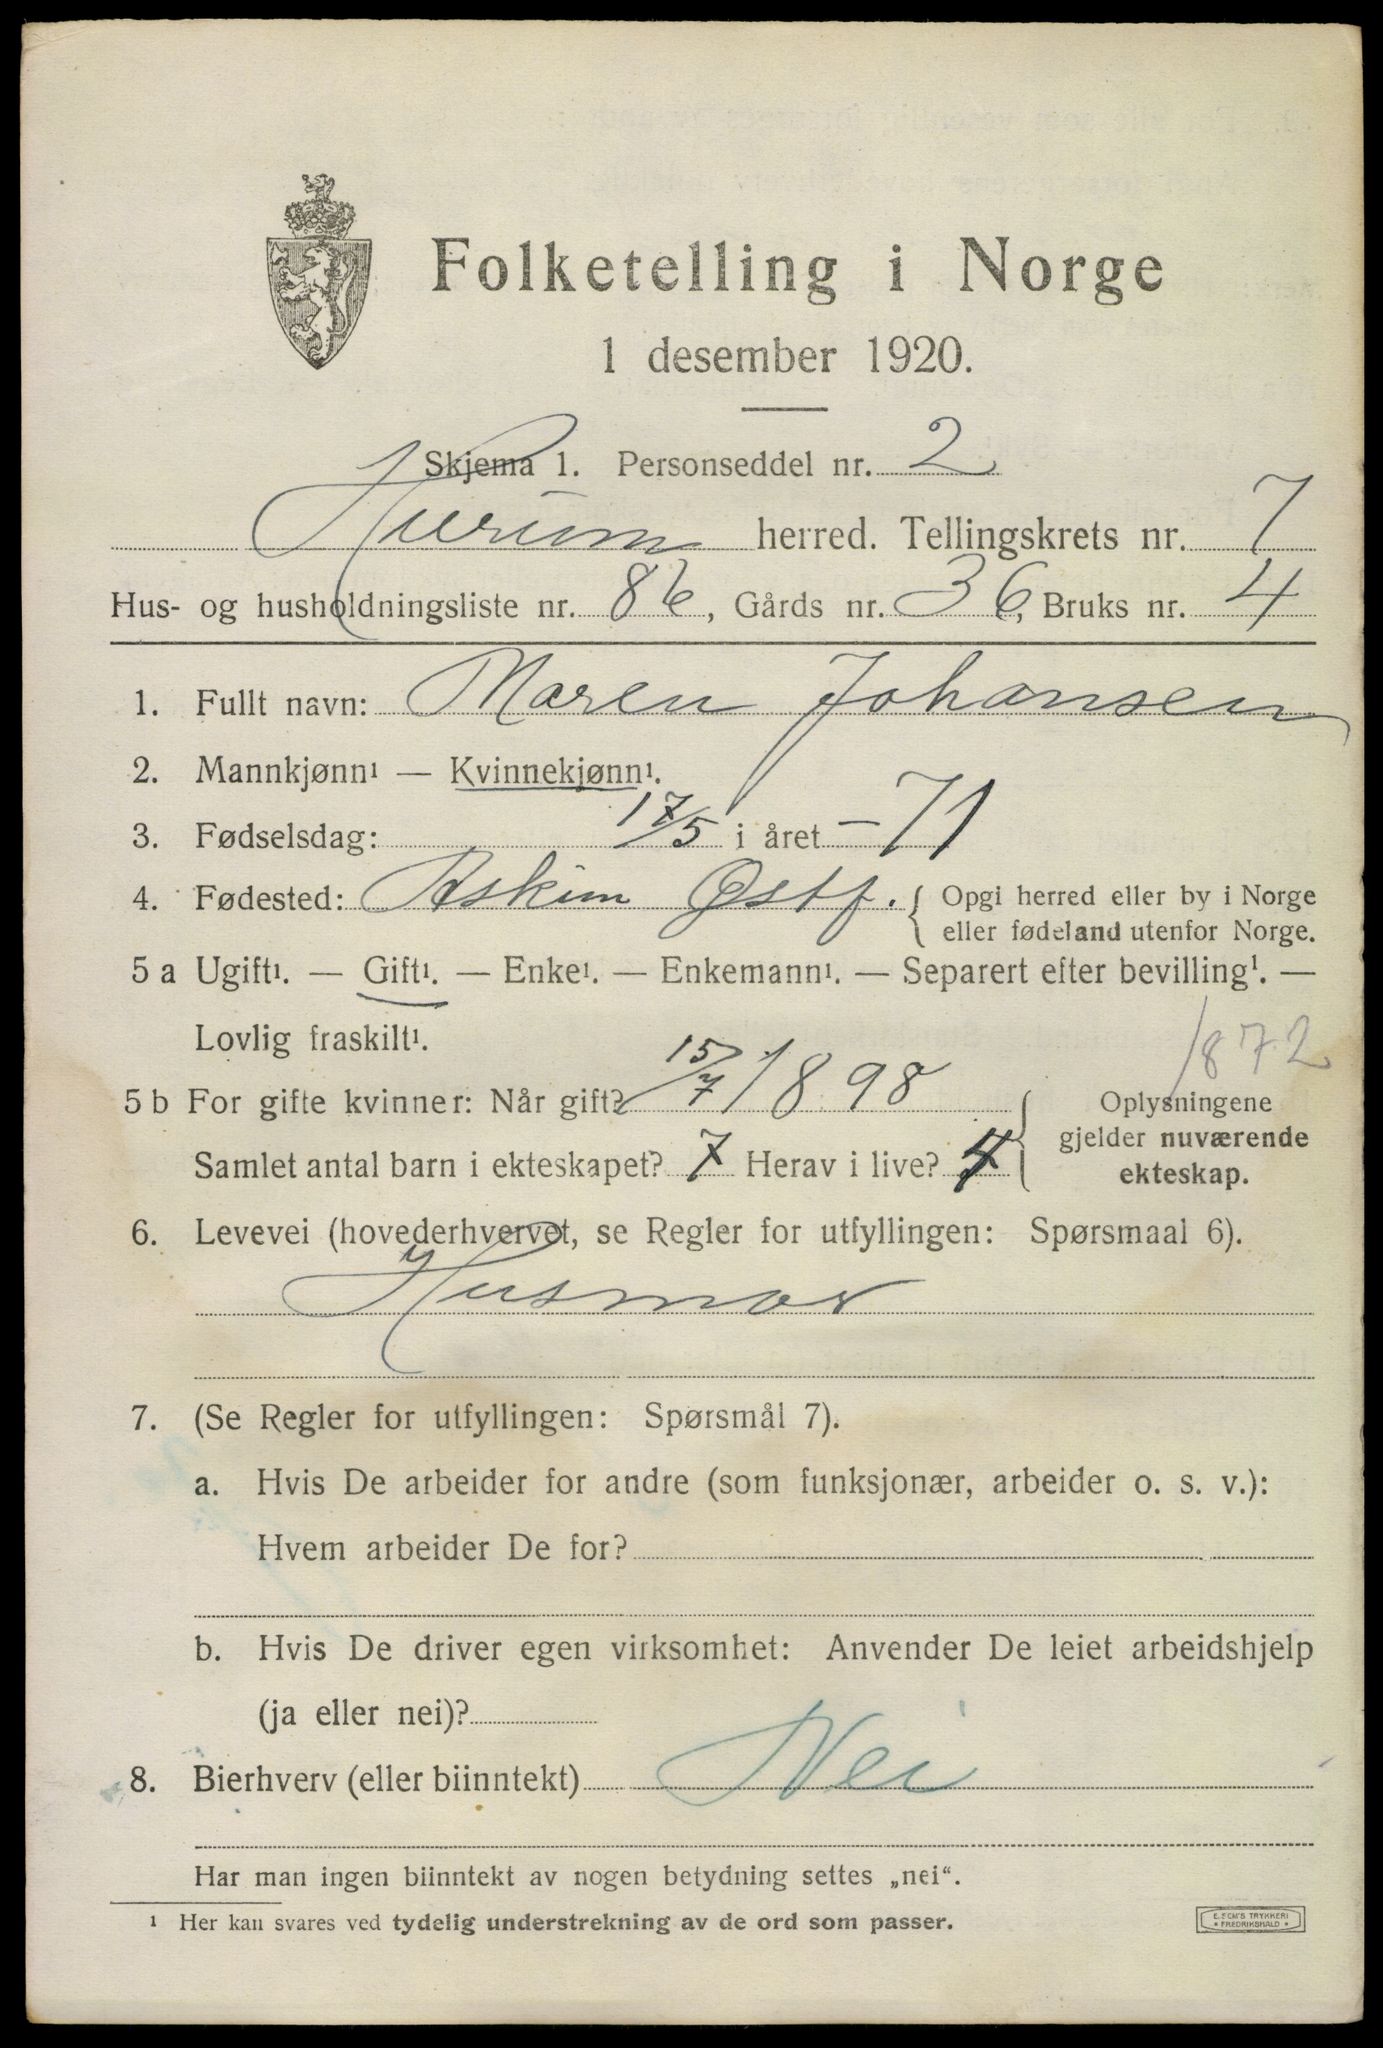 Folketelling i Norge
1 desember 1920.
Skjema 1. Personseddel nr. 2
Hurum herred. Tellingskrets nr. 7
Hus- og husholdningsliste nr. 86, Gårds nr. 36, Bruks nr. 4
1. Fullt navn: Maren Johansen
2. Mannkjønn¹ — Kvinnekjønn¹.
3. Fødselsdag: 17/5 i året -71
4. Fødested: Askim Østf. { Opgi herred eller by i Norge
eller fødeland utenfor Norge.
5 a Ugift¹. — Gift¹. — Enke¹. — Enkemann¹. — Separert efter bevilling¹. —
Lovlig fraskilt¹.
1872
5 b For gifte kvinner: Når gift? 15/7 1898
Samlet antal barn i ekteskapet? 7 Herav i live?
Oplysningene
gjelder nuværende
ekteskap.
6. Levevei (hovederhvervet, se Regler for utfyllingen: Spørsmaal 6).
Husmor
7. (Se Regler for utfyllingen: Spørsmål 7).
a. Hvis De arbeider for andre (som funksjonær, arbeider o. s. v.):
Hvem arbeider De for?
b. Hvis De driver egen virksomhet: Anvender De leiet arbeidshjelp
(ja eller nei)?
8. Bierhverv (eller biinntekt) Nei
Har man ingen biinntekt av nogen betydning settes „nei“.
¹ Her kan svares ved tydelig understrekning av de ord som passer.
E. SEM'S TRYKKERI
• FREDRIKSHALD •